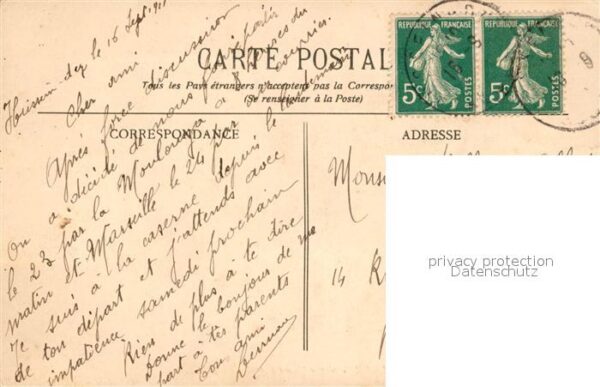 Hussein dey le 16 Sept. 
Cher ami
Après force discussion
On a décidé de nous faire partir
le 23 par la Moulouya à 8 heures du
matin et Marseille le 24 par le
Je suis à la caserne depuis le lendemain
de ton départ et j'attends avec
impatience samedi prochain
Rien de plus à te dire
Donne le bonjour de ma
part à tes parents
Ton ami
CARTE POSTALE
Tous les Pays étrangers n'acceptent pas la Correspon
(Se renseigner à la Poste)
CORRESPONDANCE
ADRESSE
REPUBLIQUE FRANÇAISE
5c
POSTES
REPUBLIQUE FRANÇAISE
5c
POSTES
Monsi
14 R
privacy protection
Datenschutz